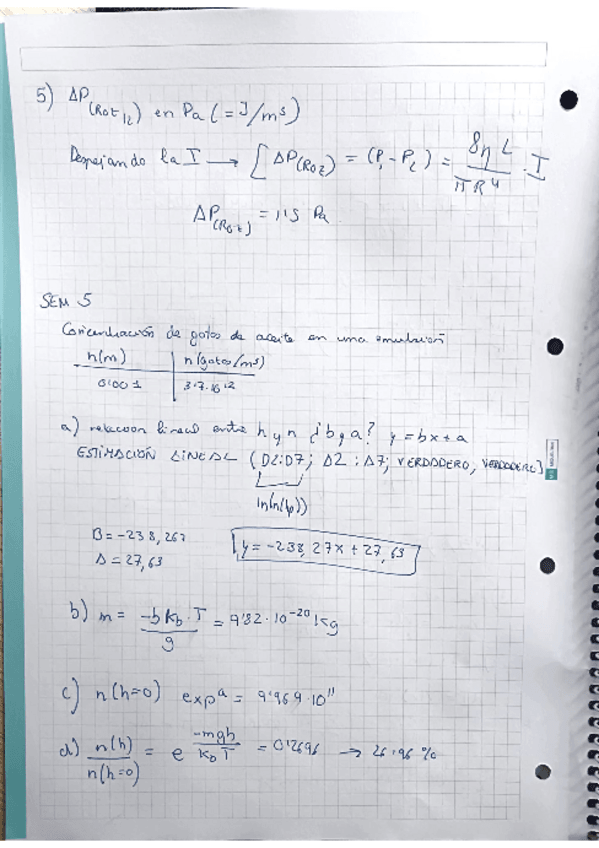 5) ΔP(Rot 12) en Pa (= J/m³)
Despejando la I → [ΔP(Rot) = (P₁ - P₂) = 8η L / πR⁴ · I
ΔP(Rot) = 1'15 Pa
SEM 5
Concentración de gotas de aceite en una emulsión
h(m) | n(gotas/m³)
0'001 |
a) relacion lineal entre h y n ¿b y a? y = bx + a
ESTIMACIÓN LINEAL (D2:D7; A2:A7; VERDADERO, VERDADERO)
B = -238,267
A = 27,63
y = -238,27x + 27,63
b) m = -b k_b · T / g = 9'82 · 10⁻²⁰ kg
c) n(h=0) exp^a = 9'969 · 10¹¹
d) n(h) / n(h=0) = e^(-mgh / k_b T) = 0'2696 → 26'96 %